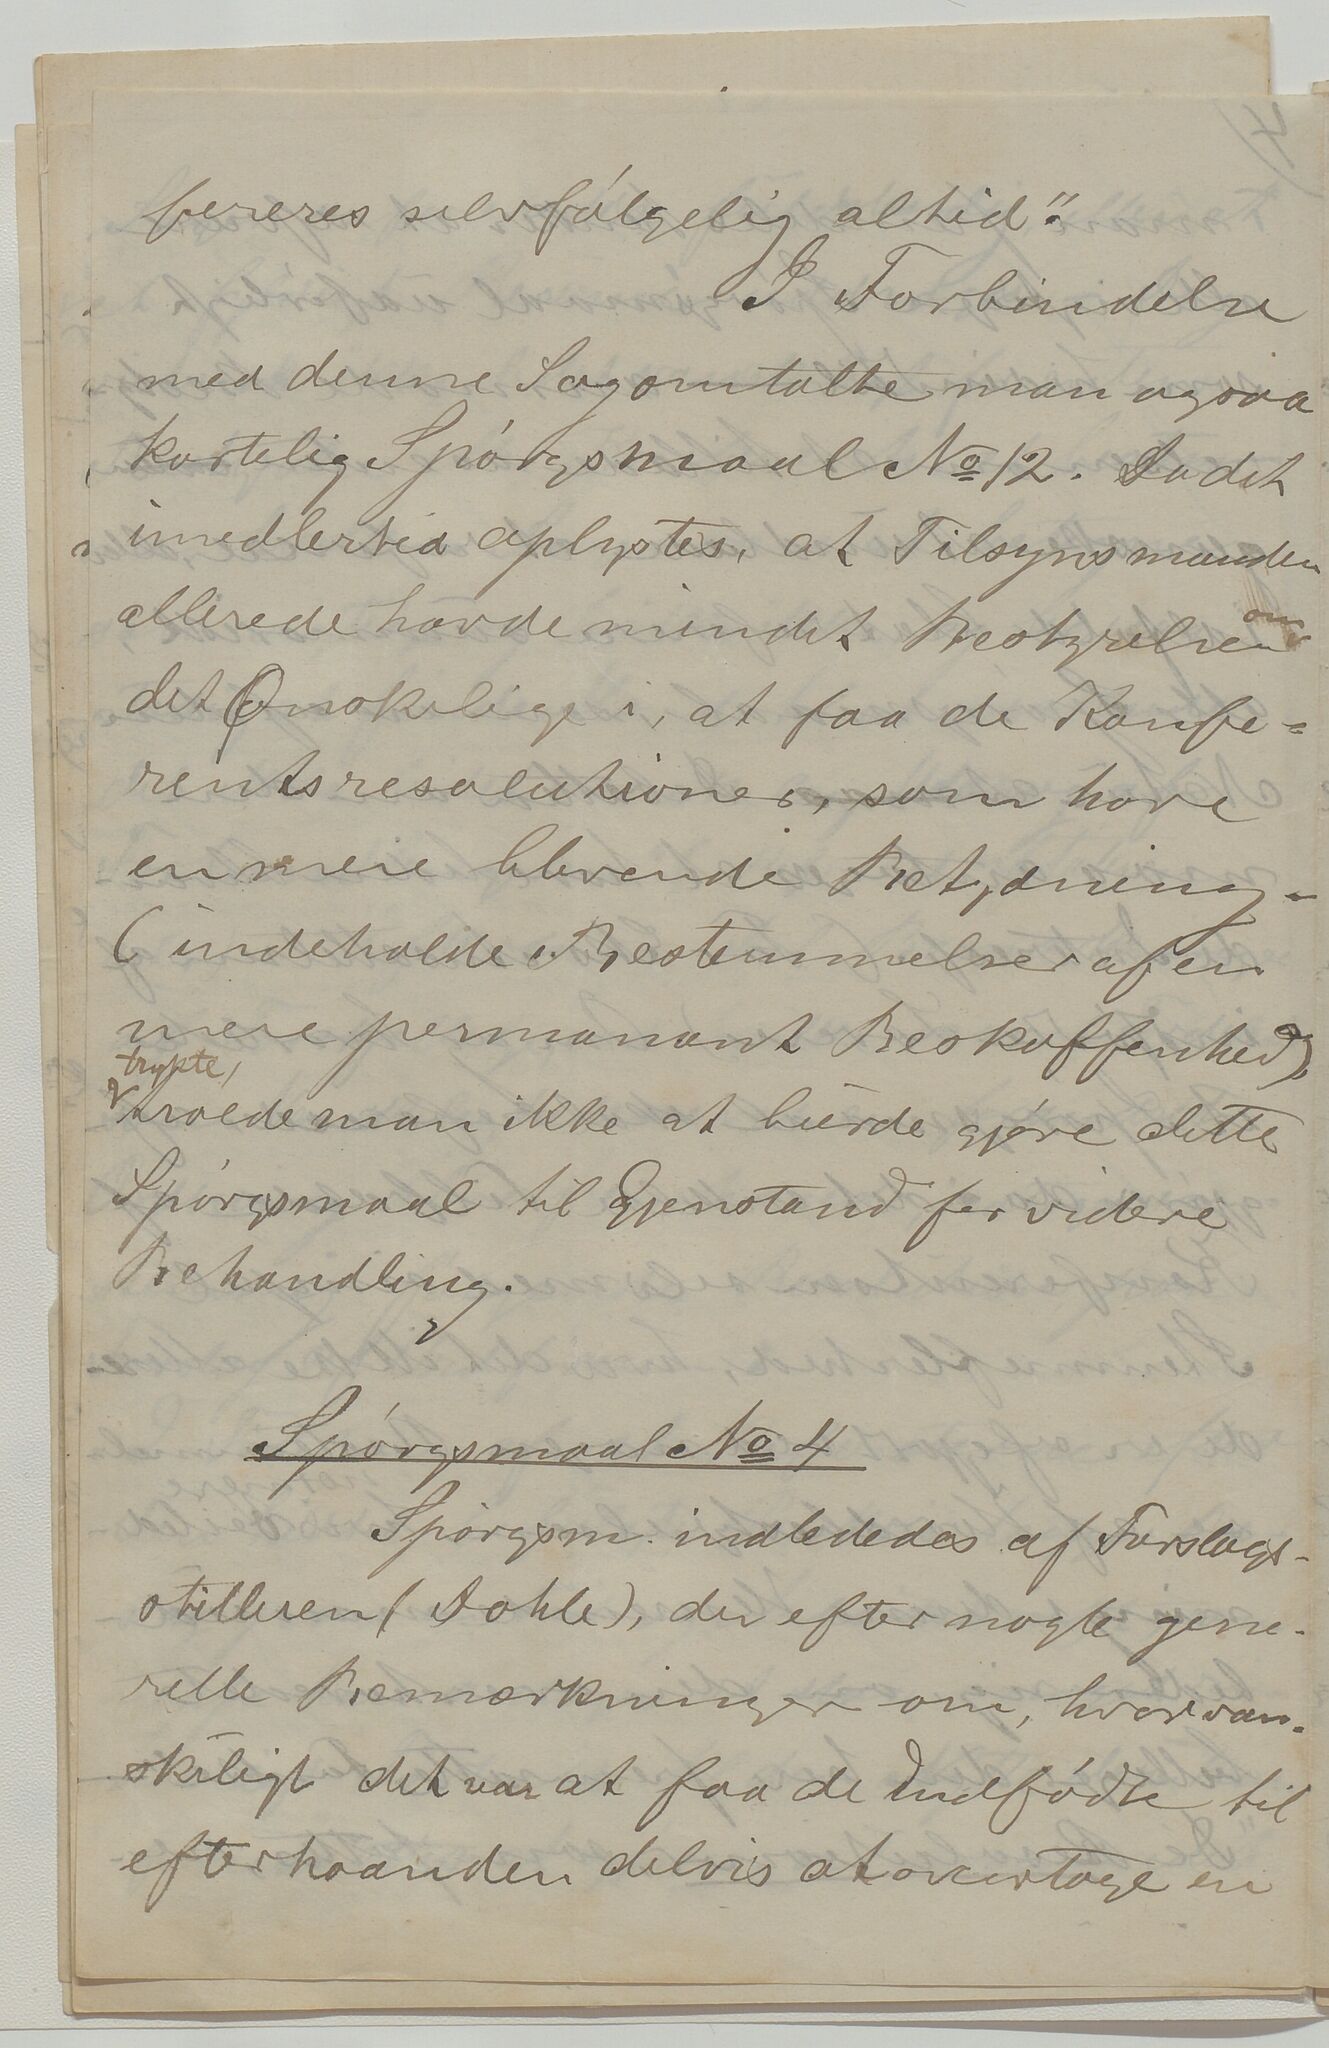 fereres selvfølgelig altid".
I Forbindelse
med denne Sag omtalte man ogsaa
kortelig Spórgsmaal No 12. Da det
imedlertid oplystes, at Tilsynsmanden
allerede havde mindet Bestyrelsen om
det Ønskelige i, at faa de Konfe-
rentsresolutioner, som have
en mere blivende Betydning -
(indeholde Bestemmelser af en
mere permanant Beskaffenhed),
trykte,
troede man ikke at burde gjóre dette
Spórgsmaal til Gjenstand for videre
Behandling.
Spórgsmaal No 4
Spórgsm. indlededes af Forslags-
stilleren (Dahle), der efter nogle gene-
relle Bemærkninger om, hvor van-
skeligt det var at faa de Indfódte til
efterhaanden delvis at overtage en